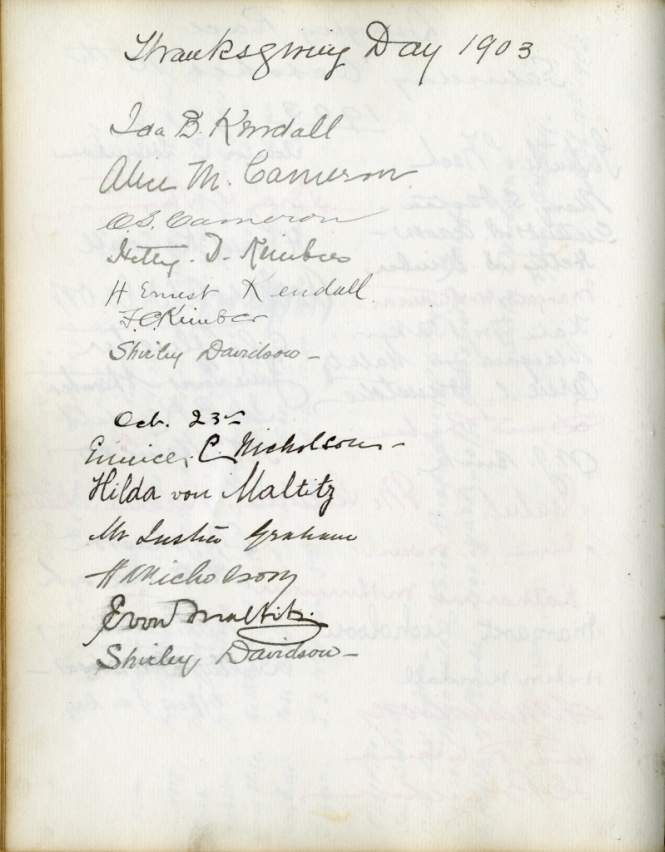 Thanksgiving Day 1903
Ida B. Kendall
Alice M. Cameron
C.S. Cameron
Hettey. D. Kimber
H Ernest Kendall.
F.C. Kimber
Shirley Davidson –
Oct. 23rd
Eunice. C. Nicholson –
Hilda von Maltitz
Mr Justin Graham
H Nicholson
E von Maltitz.
Shirley Davidson –